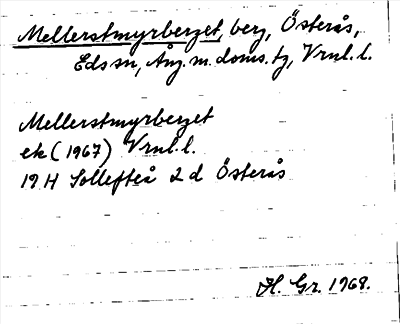 Mellerstmyrberget, berg, Österås,
Eds sn, Ång. m. doms. tg, Vrnl. l.
Mellerstmyrberget
ek (1967) Vrnl. l.
19 H Sollefteå 2 d Österås
H. Gr. 1969.